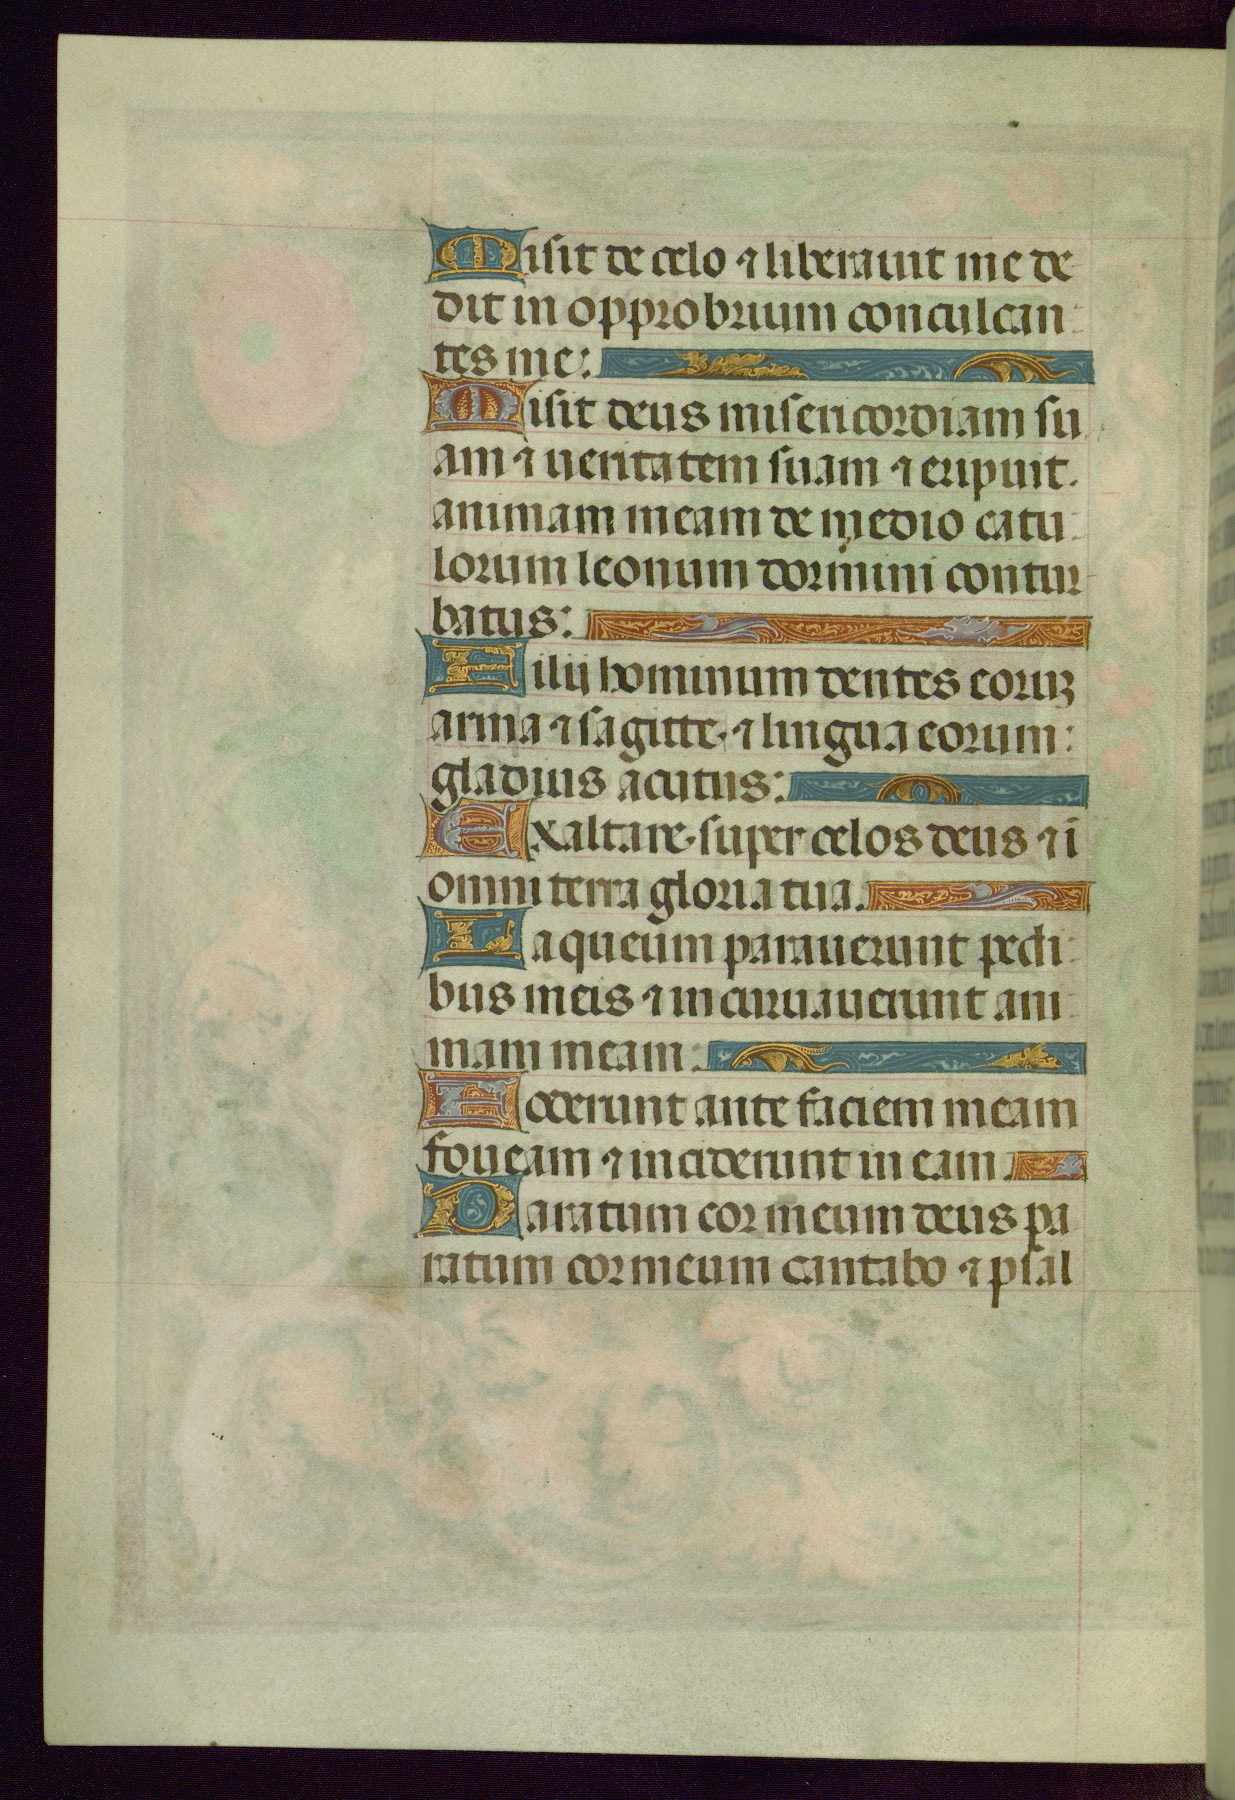 Misit de celo ⁊ liberauit me de
dit in opprobrium conculcan-
tes me:
Misit deus misericordiam su
am ⁊ ueritatem suam ⁊ eripuit.
animam meam de medio catu-
lorum leonum dormiui contur
batus:
Filij hominum dentes eoruꝫ
arma ⁊ sagitte. ⁊ lingua eorum:
gladius acutus:
Exaltare super celos deus ⁊ ī
omni terra gloria tua.
Laqueum parauerunt pedi-
bus meis ⁊ incuruauerunt ani-
mam meam:
Foderunt ante faciem meam
foueam ⁊ inciderunt in eam.
Paratum cor meum deus pa
ratum cor meum cantabo ⁊ psal